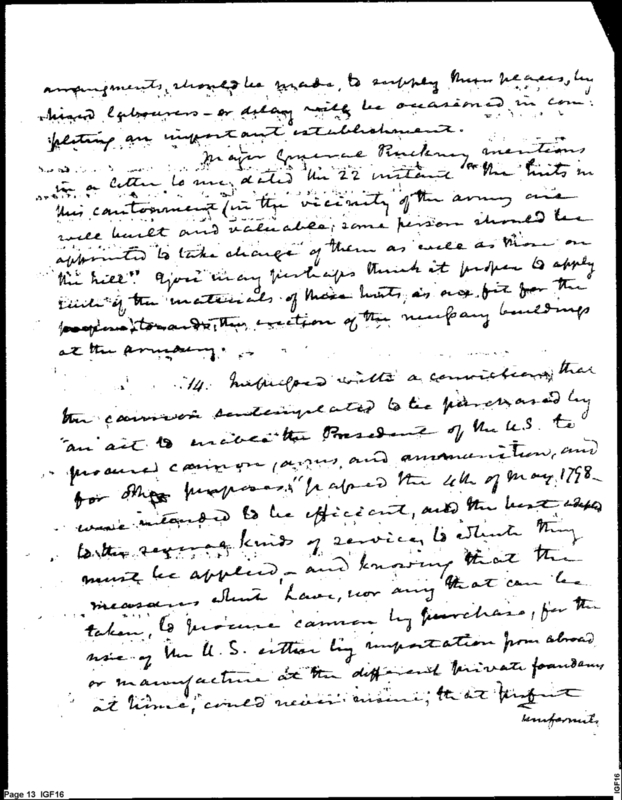 arrangments, should be made, to supply their places, by
hired labourers – or delay will be occasioned in com-
pleting an important establishment.
Major General Pinckney mentions
in a letter to me, dated the 22 instant "the huts in
this cantonment (in the vicinity of the army are
well built and valuable; some person should be
appointed to take charge of them as well as those on
the hill." You may perhaps think it proper to apply
such of the materials of these huts, as are fit for the
purpose, towards, the erection of the necessary buildings
at the armoury.
14. Impressed with a conviction, that
the cannon contemplated to be purchased by
"an act to enable the President of the U.S. to
procure cannon, arms, and ammunition, and
for other purposes," passed the 4th of May, 1798–
were intended to be efficient, and the best adapted
to the several kinds of service, to which they
must be applied – and knowing that the
measures which have, nor any that can be
taken, to procure cannon by purchase, for the
use of the U.S. either by importation from abroad
or manufacture at the different private foundaries
at home, could never insure, that perfect
uniformity
Page 13 IGF16
IGF16